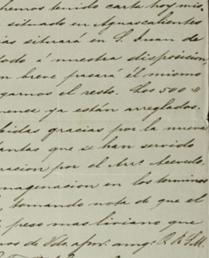 hemos tenido carta hoy mis
situado en Aguascalientes
as situará en S. Juan de
todo á nuestra disposicion,
n breve pasará el mismo
garnos el resto. Los 500
ya están arreglados.
bidas gracias por la nueva
antas que se han servido
nacion por el Acevedo,
maginacion en los terminos
tomando nota de que el
peso mas liviano que